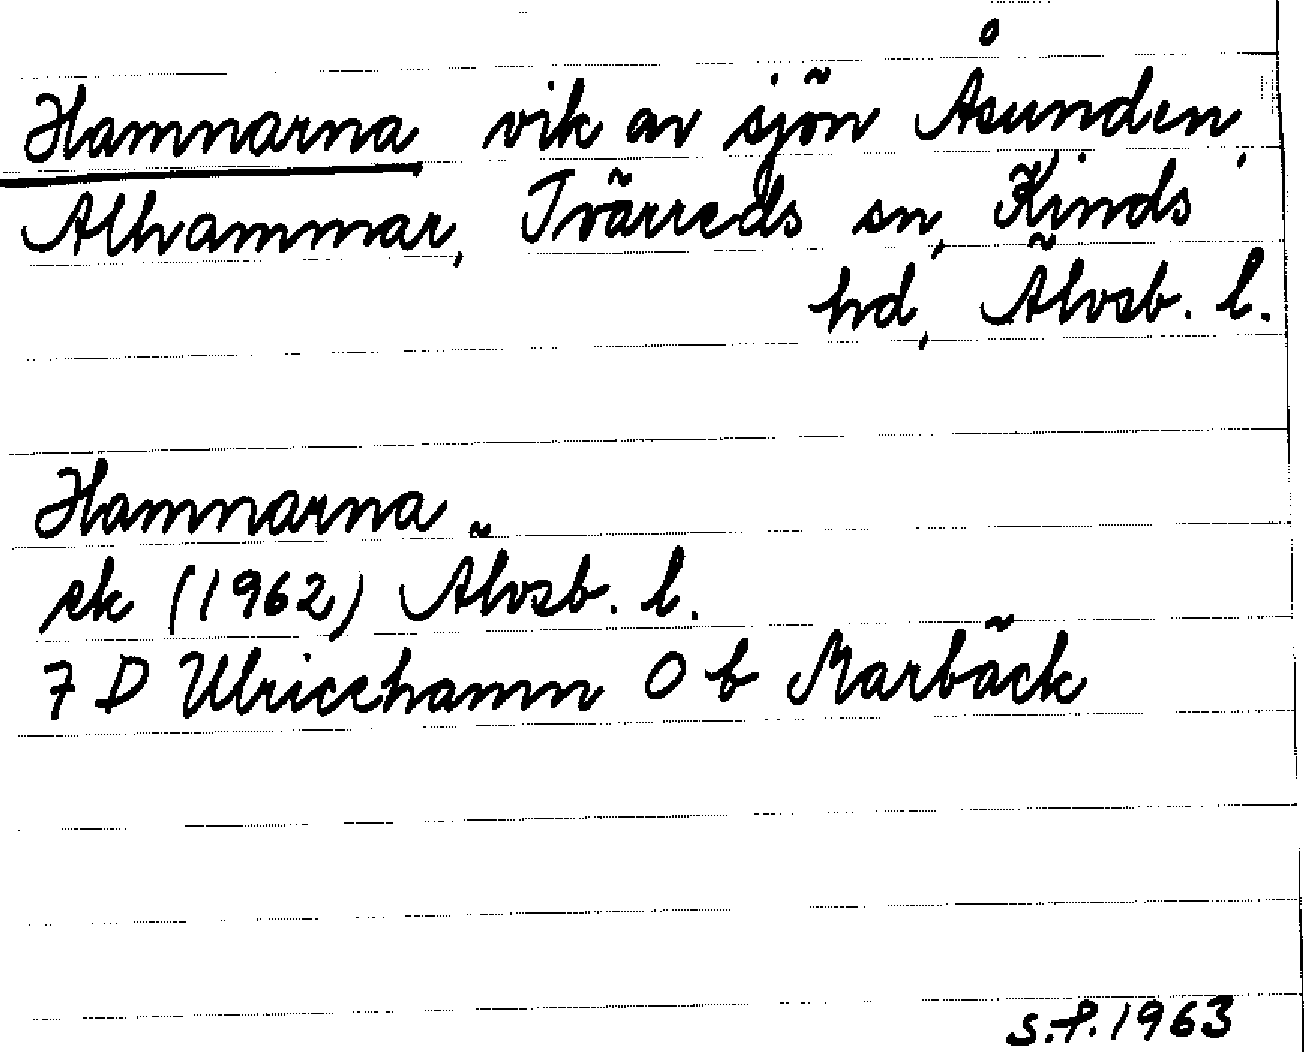 Hamnarna vik av sjön Åsunden,
Alhammar, Tvärreds sn, Kinds
hd, Älvsb. l.
Hamnarna
ek (1962) Älvsb. l.
7 D Ulricehamn 0 b Marbäck
S.F. 1963